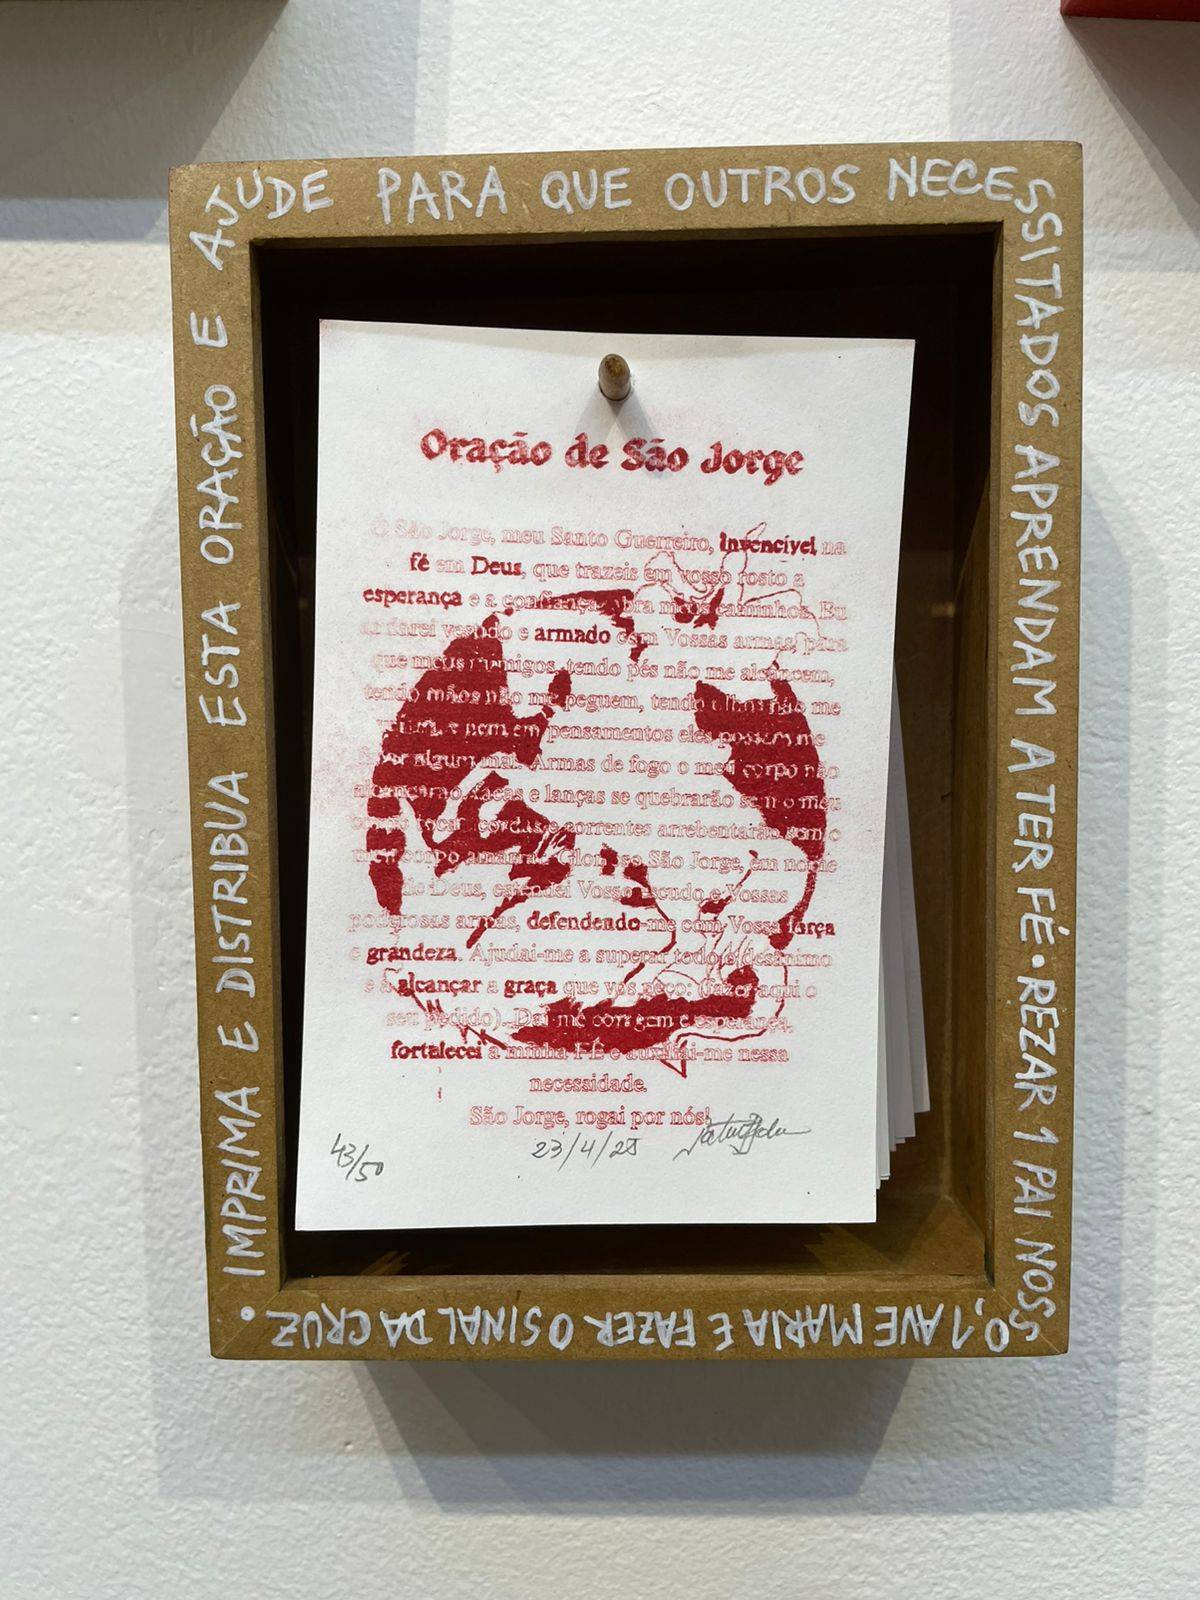 IMPRIMA E DISTRIBUA ESTA ORAÇÃO E AJUDE PARA QUE OUTROS NECESSITADOS APRENDAM A TER FÉ • REZAR 1 PAI NOSSO, 1 AVE MARIA E FAZER O SINAL DA CRUZ.
Oração de São Jorge
Ó São Jorge, meu Santo Guerreiro, invencível na
fé em Deus, que trazeis em vosso rosto a
esperança e a confiança, abra meus caminhos. Eu
andarei vestido e armado com Vossas armas, para
que meus inimigos, tendo pés não me alcancem,
tendo mãos não me peguem, tendo olhos não me
vejam, e nem em pensamentos eles possam me
fazer algum mal. Armas de fogo o meu corpo não
alcançarão, facas e lanças se quebrarão sem o meu
corpo tocar, cordas e correntes arrebentarão sem o
meu corpo amarrar. Glorioso São Jorge, em nome
de Deus, estendei Vosso escudo e Vossas
poderosas armas, defendendo-me com Vossa força
e grandeza. Ajudai-me a superar todo o desânimo
e a alcançar a graça que vos peço: (fazer aqui o
seu pedido). Dai-me coragem e esperança,
fortalecei a minha FÉ e auxiliai-me nessa
necessidade.
São Jorge, rogai por nós!
43/50 23/4/25